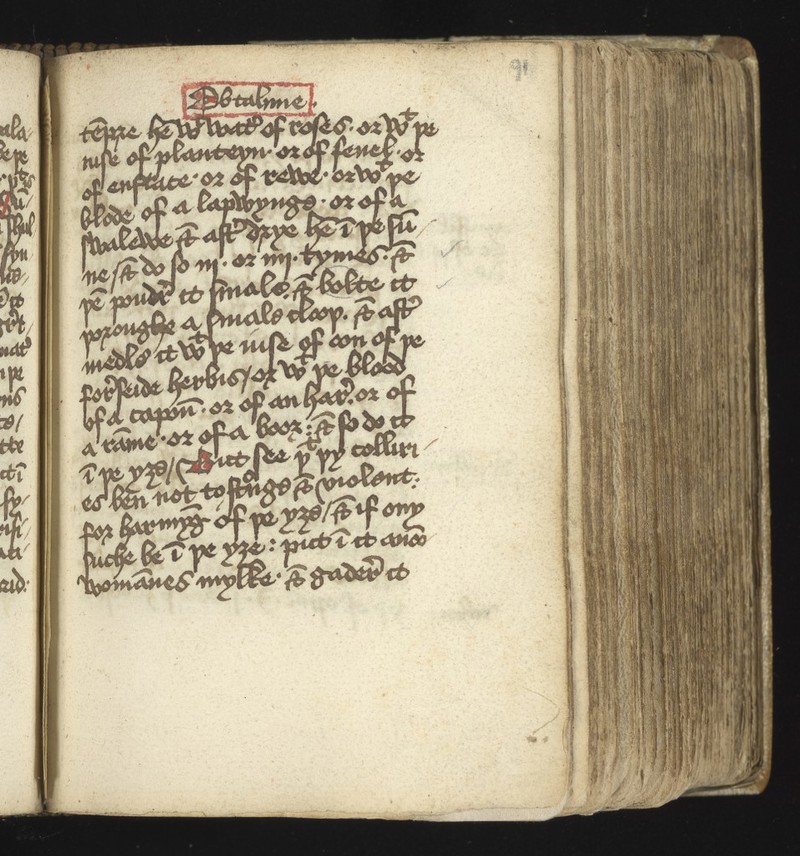 91
Obtalmie.
tēpre hē wt watr̄ of roses· or wt þe
iuse of planteyn· or of fenel· or
of eufrace· or of rewe· or wt þe
blode of a lapwynge· or of a
swalewe & aftr̄ drye hē ī þe sū
ne / & do so iij· or iiij· tymes· &
þē poudr̄ it smale· & bolte it
þoroughe a smale cloop. & aftr̄
medle it wt þe iuse of oon of þe
forseide herbis / or wt þe blood
of a capoū· or of an har̄· or of
a rāme· or of a boor: & so do it
ī þe yȝe / But see þt þy colliri
es ben not to strōge & violent:
for harmyḡ of þe yȝe / & if ony
suche be ī þe yȝe: putt ī it
womānes mylke· & gader̄ it